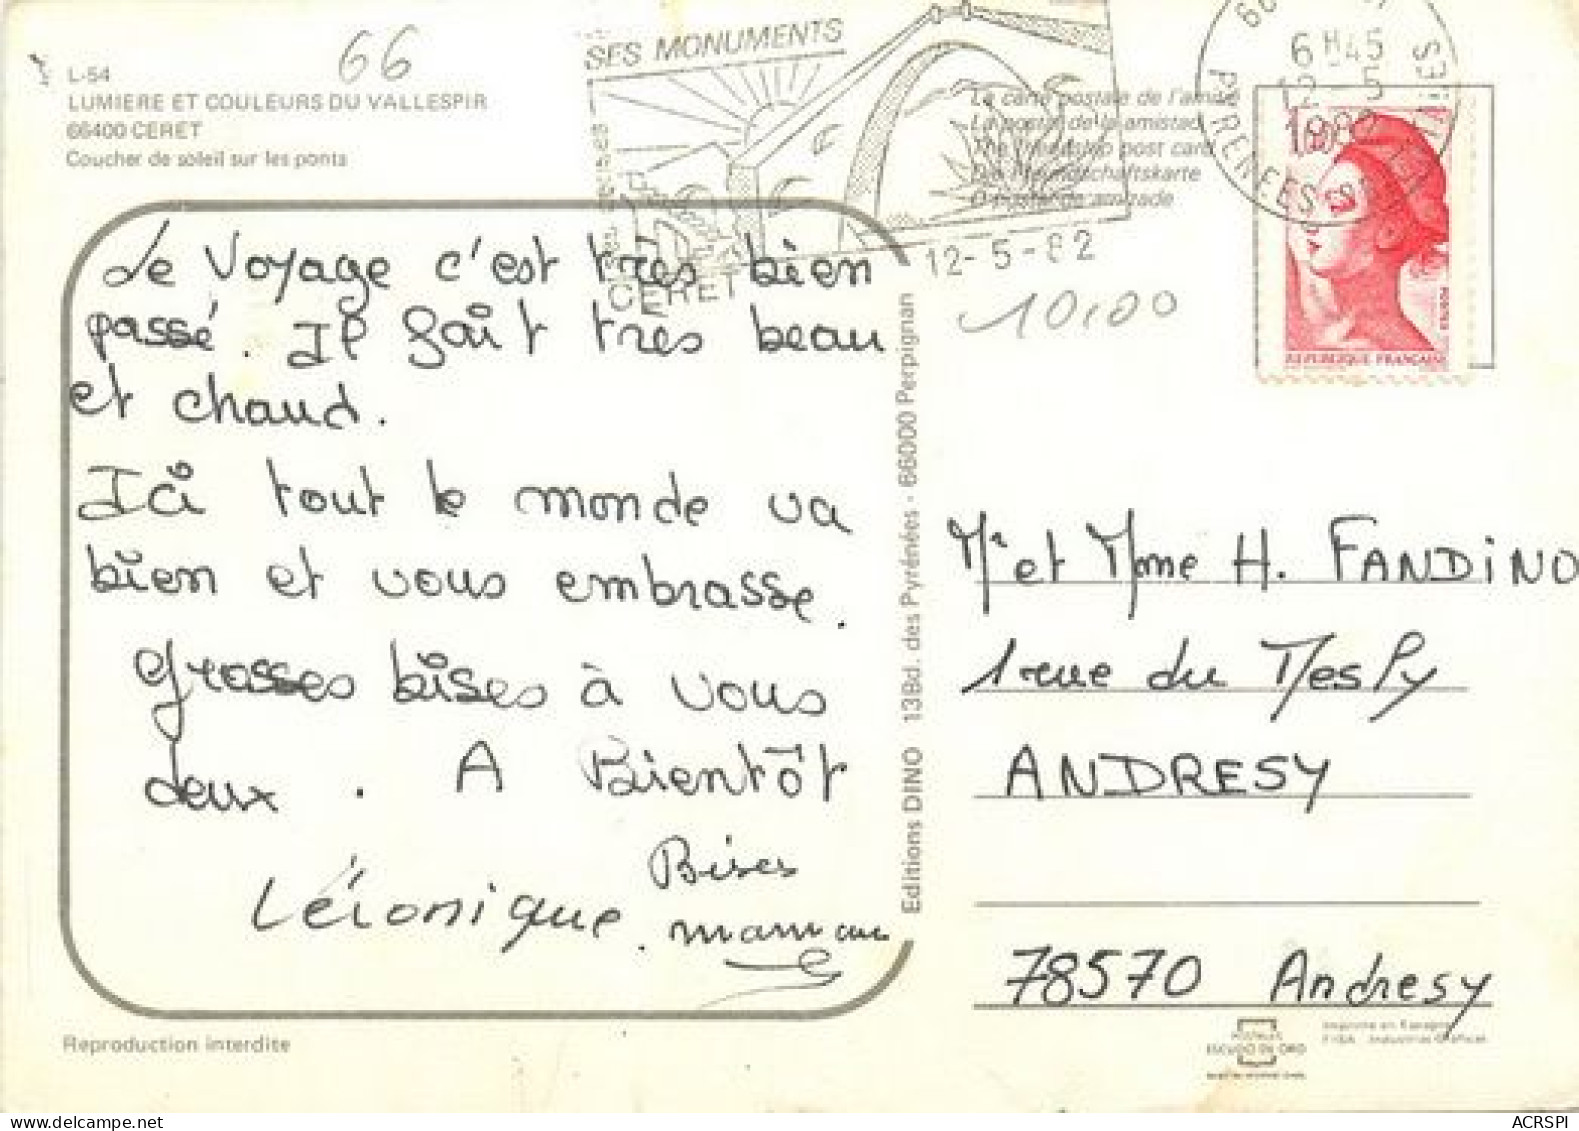 66
L-54
LUMIERE ET COULEURS DU VALLESPIR
66400 CERET
Coucher de soleil sur les ponts
SES MONUMENTS
CERET
12-5-82
6H45
12-5
1982
PYRENEES
La carte postale de l'amitié
La postal de la amistad
The friendship post card
Die Freundschaftskarte
O postal de amizade
10,00
POSTES
REPUBLIQUE FRANÇAISE
Le Voyage c'est très bien
passé. Il fait très beau
et chaud.
Ici tout le monde va
bien et vous embrasse.
Grosses bises à vous
deux. A Bientôt
Véronique.
Bises
maman
Editions DINO 13Bd. des Pyrénées - 66000 Perpignan
Mr et Mme H. FANDiNO
1 rue du Mesly
ANDRESY
78570 Andresy
Reproduction interdite
POSTALES
ESCUDO DE ORO
Imprimé en Espagne
FISA Industrias Gráficas
ACRSPI